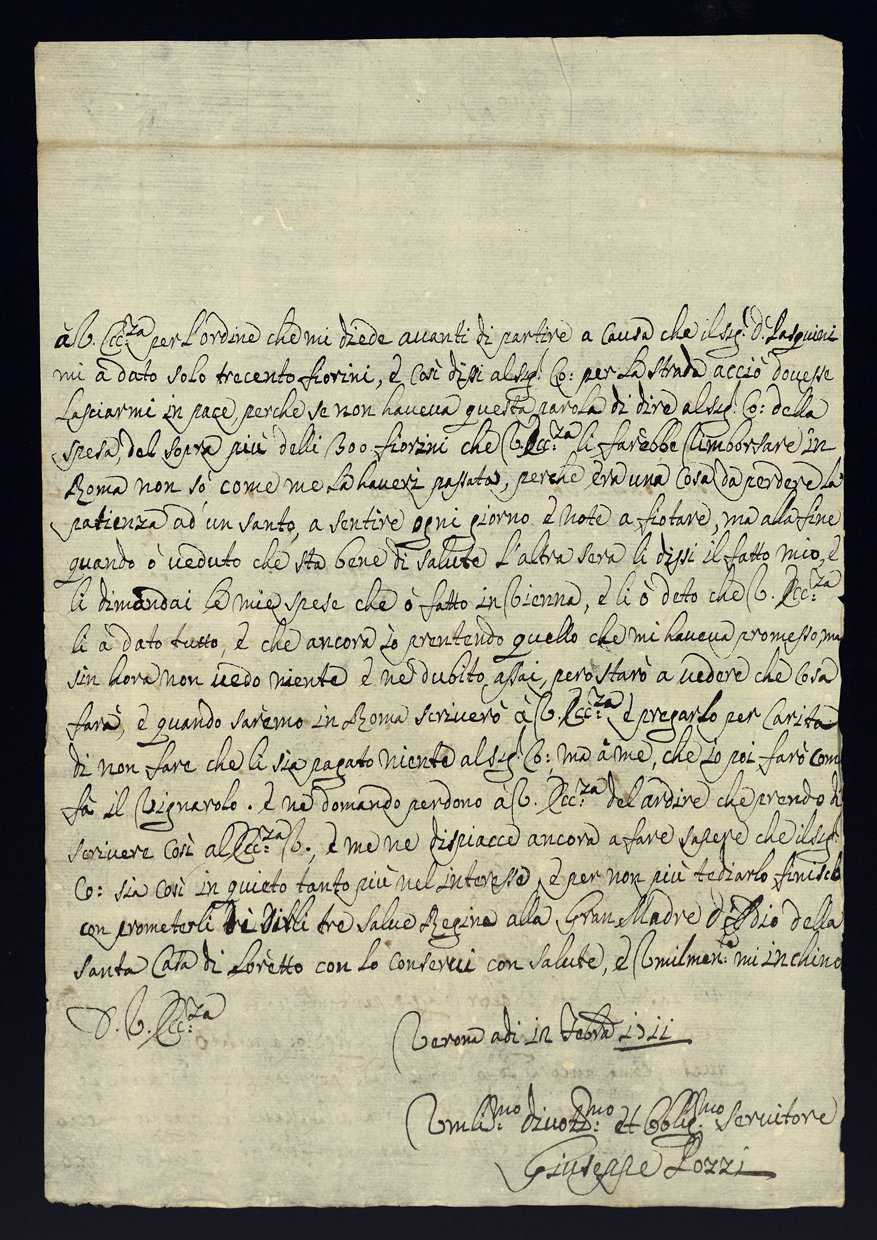 à V. Ecc:za per L'ordine che mi diede auanti di partire a causa che il sig:r D. Pasquini
mi à dato solo trecento fiorini, è Così dissi al sig:r Co: per La strada acciò douesse
Lasciarmi in pace, perche se non haueua questa parola di dire al sig:r Co: della
spesa, del sopra più delli 300 fiorini che V. Ecc:za li farèbbe rimborsare in
Roma non sò come me La haueri passata, perche èra una Cosa da perdere La
patienza ad un santo, a sentire ogni giorno è note a fiotare, ma alla fine
quando ò ueduto che sta bene di salute L'altra sera li dissi il fatto mio, è
li dimandai le mie spese che ò fatto in Vienna, è li ò deto che V. Ecc:za
li à dato tutto, è che ancora io prentendo quello che mi haueua promesso, ma
sin hora non uedo niente è ne dubito assai, però starò a uedere che Cosa
farà, è quando sarèmo in Roma scriuerò à V. Ecc:za è pregarlo per Carità
di non fare che li sia pagato niente al sig:r Co: ma à me, che io poi farò com
fà il Vignarolo. è ne domando perdono à V. Ecc:za del ardire che prendo di
scriuere Così al Ecc:za V., è me ne dispiacce ancora a fare sapere che il sig:r
Co: sia Così in quieto tanto più nel interesse, è per non più tediarlo finisco
con prometerli tre Salue Regine alla Gran Madre d'Iddio della
santa Casa di Lorètto con lo conserui con salute, è Vmilmen:te mi inchino
D. V. Ecc:za
Verona adi in Febra 1711
Vmili:mo diuoti:mo et Obblig:mo seruitore
Giuseppe Pozzi